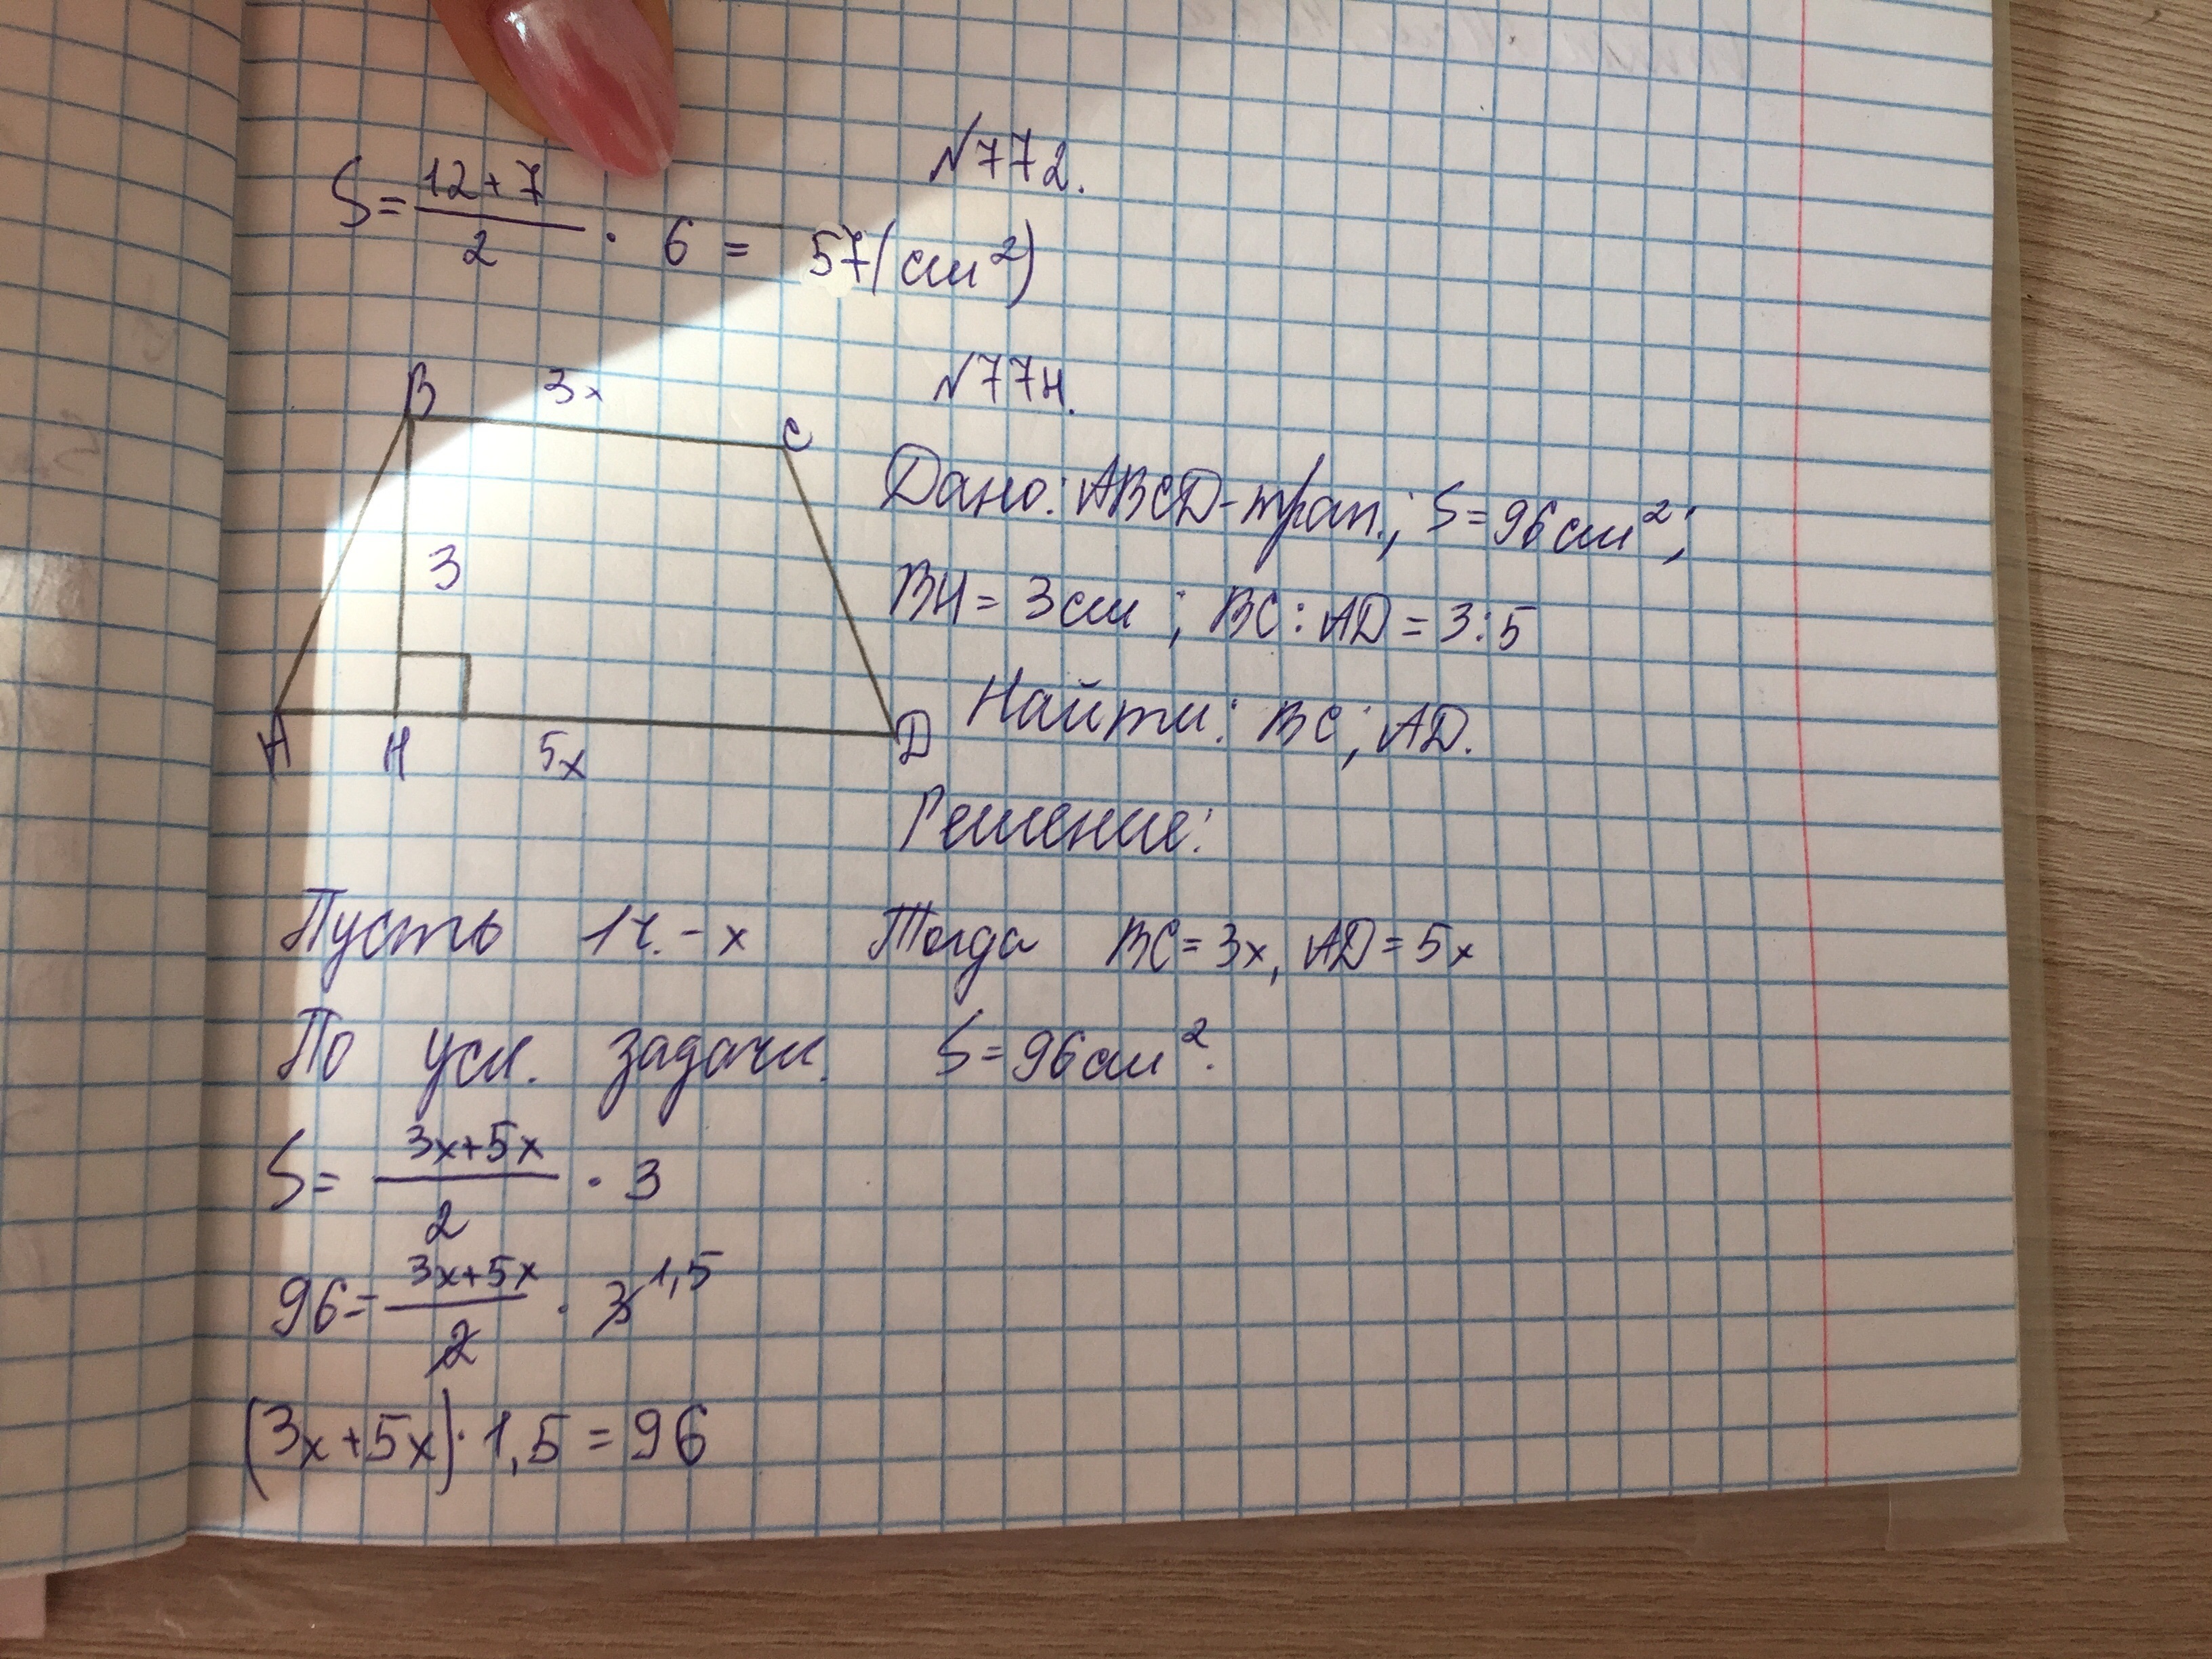 №772.
S = 12+7/2 · 6 = 57(см²)
№774.
B 3x C
3
A H 5x D
Дано: ABCD-трап.; S=96см²;
BH = 3см ; BC : AD = 3:5
Найти: BC; AD.
Решение:
Пусть 1ч. - x Тогда BC = 3x, AD = 5x
По усл. задачи. S = 96см².
S = 3x+5x/2 · 3
96 = 3x+5x/2 · 3 1,5
(3x+5x) · 1,5 = 96